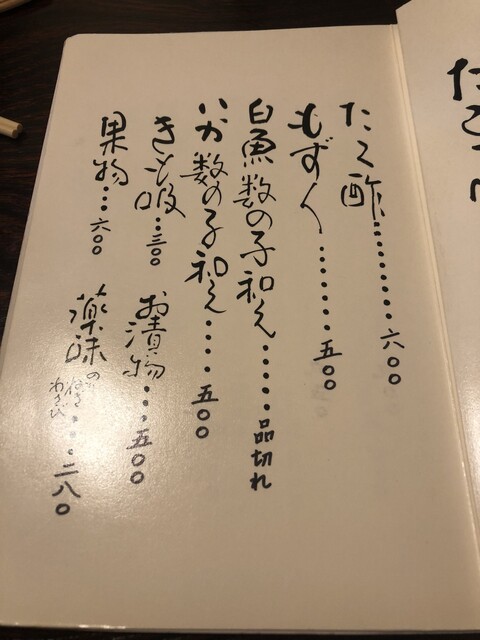 たこ酢………六〇〇
もずく………五〇〇
白魚数の子和え……品切れ
いか数の子和え……五〇〇
きも吸…三〇〇
お漬物…五〇〇
果物…六〇〇
薬味 のり ねぎ わさび …二八〇